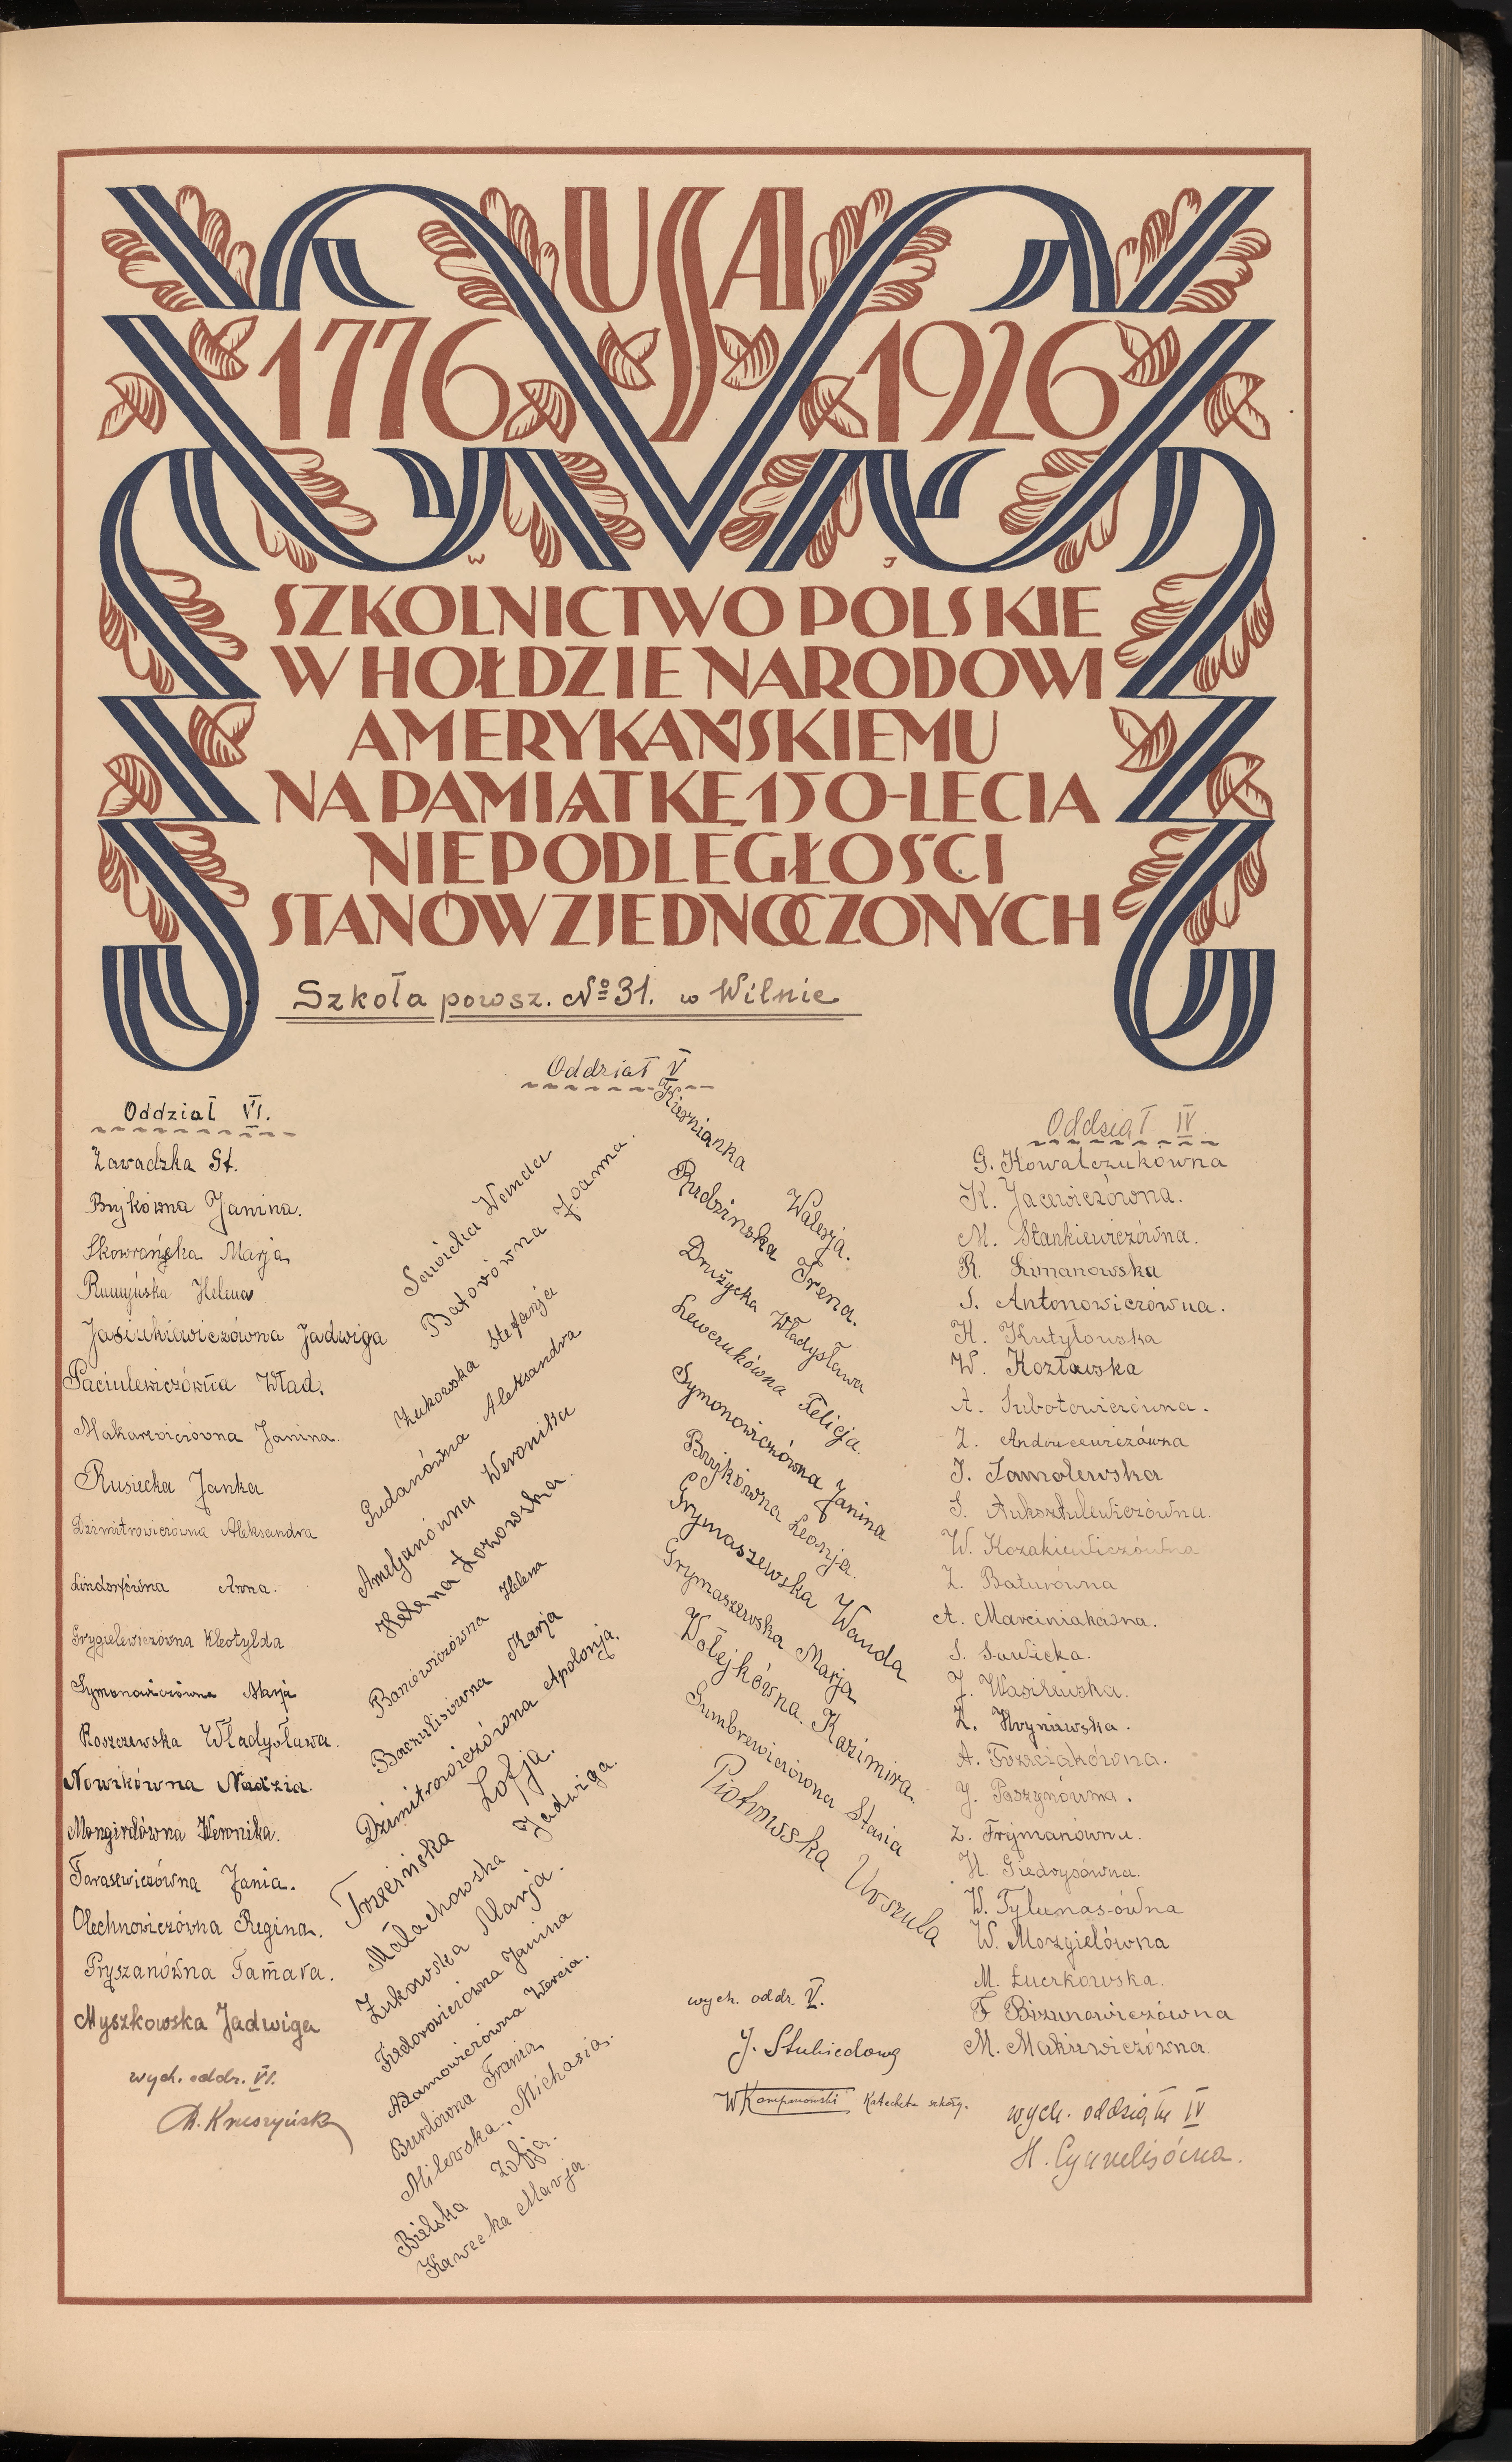 USA
1776 1926
W J
SZKOLNICTWO POLSKIE
W HOŁDZIE NARODOWI
AMERYKAŃSKIEMU
NA PAMIĄTKĘ 150-LECIA
NIEPODLEGŁOŚCI
STANÓW ZJEDNOCZONYCH
Szkoła powsz. No 31. w Wilnie
Oddział VI.
Zawadzka St.
Bujkówna Janina.
Skowrońska Marja
Rumyńska Helena
Jasiukiewiczówna Jadwiga
Paciulewiczówna Wład.
Makarewiczówna Janina.
Rusiecka Janka
Dzimitrowiczówna Aleksandra
Lindorfówna Anna.
Grygielewiczówna Kleotylda
Symonowiczówna Marja
Roszczewska Władysława.
Nowikówna Nadzia.
Mongirdówna Weronika.
Tarasewiczówna Jania.
Olechnowiczówna Regina.
Pryszanówna Tamara.
Myszkowska Jadwiga
wych. oddz. VI.
Oddział V
Sawicka Wanda
Batorówna Joanna.
Żukowska Stefanja
Gudanówna Aleksandra
Ameljanówna Weronika
Helena Łozowska.
Baniewiczówna Helena
Baczulisówna Marja
Dzimitrowiczówna Apolonja.
Trzecińska Zofja.
Małachowska Jadwiga.
Żukowska Marja.
Fiedorowiczówna Janina
Adamowiczówna Wercia.
Burdówna Frania
Milewska Michasia.
Bielska Zofja.
Kawecka Marja.
Kiernianka Walerja.
Rudzinska Irena.
Drużycka Władysława
Lewczukówna Felicja.
Symonowiczówna Janina
Bujkówna Leonja.
Grymaszewska Wanda
Grymaszewska Marja
Wołejkówna Kazimira.
Gumbrewiczówna Stasia
Piotrowska Urszula
wych. oddz. V.
J. Stubiedowa
W Kompanowski Katecheta szkoły.
Oddział IV
G. Kowalczukówna
K. Jacewiczówna.
M. Stankiewiczówna.
R. Limanowska
S. Antonowiczówna.
H. Kutyłowska
W. Kozłowska
A. Subotowiczówna.
Z. Andrucewiczówna
J. Samolewska
S. Auksztulewiczówna.
W. Kozakiewiczówna
Z. Baturówna
A. Marciniakówna.
S. Sawicka.
J. Wasilewska.
Z. Hryniewska.
A. Trzeciakówna.
J. Paszynówna.
Z. Frejmanówna.
H. Giedrysówna.
W. Tylunasówna
W. Mozgielówna
M. Łuczkowska.
F Bizunowiczówna
M. Makarewiczówna.
wych. oddziału IV